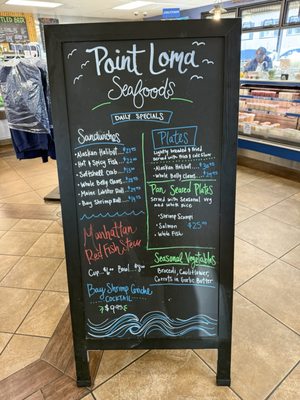 Point Loma
Seafoods
DAILY SPECIALS
Sandwiches
Alaskan Halibut
Hot & Spicy Fish
Softshell Crab
Whole Belly Clams
Maine Lobster Roll
Bay Shrimp Roll
Plates
Lightly Breaded and Fried
Served with Fries & Cole Slaw
Alaskan Halibut
Whole Belly Clams
Pan Seared Plates
Served with Seasonal Veg
and White Rice
Shrimp Scampi
Salmon
White Fish
$25
Manhattan
Red Fish Stew
Cup Bowl
Seasonal Vegetables
Broccoli, Cauliflower,
Carrots in Garlic Butter
Bay Shrimp Ceviche
COCKTAIL